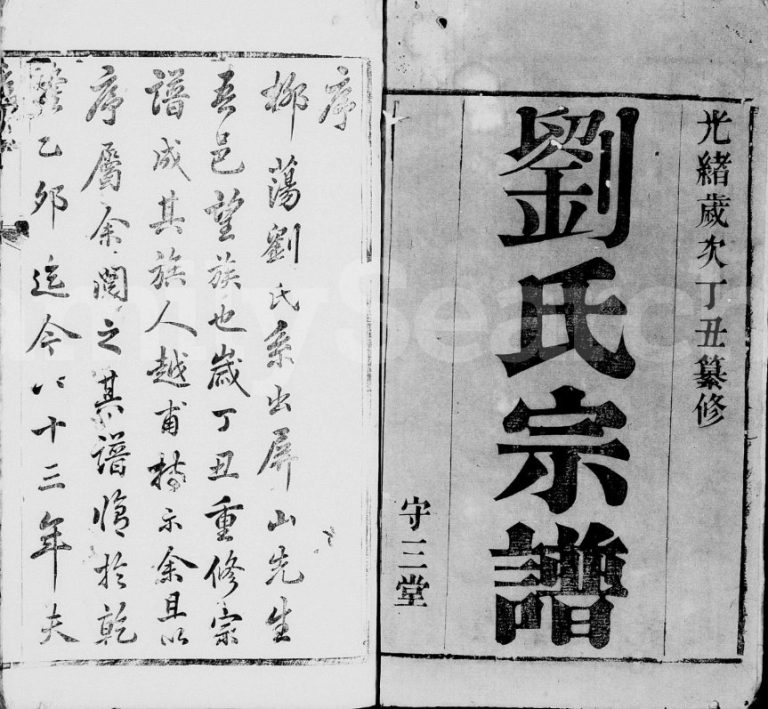 光緒歲次丁丑纂修
劉氏宗譜
守三堂
序
柳蕩劉氏系出屏山先生
吾邑望族也歲丁丑重修宗
譜成其族人越甫持示余且以
序屬余閱之其譜脩於乾
隆乙卯迄今八十三年夫
FamilySearch